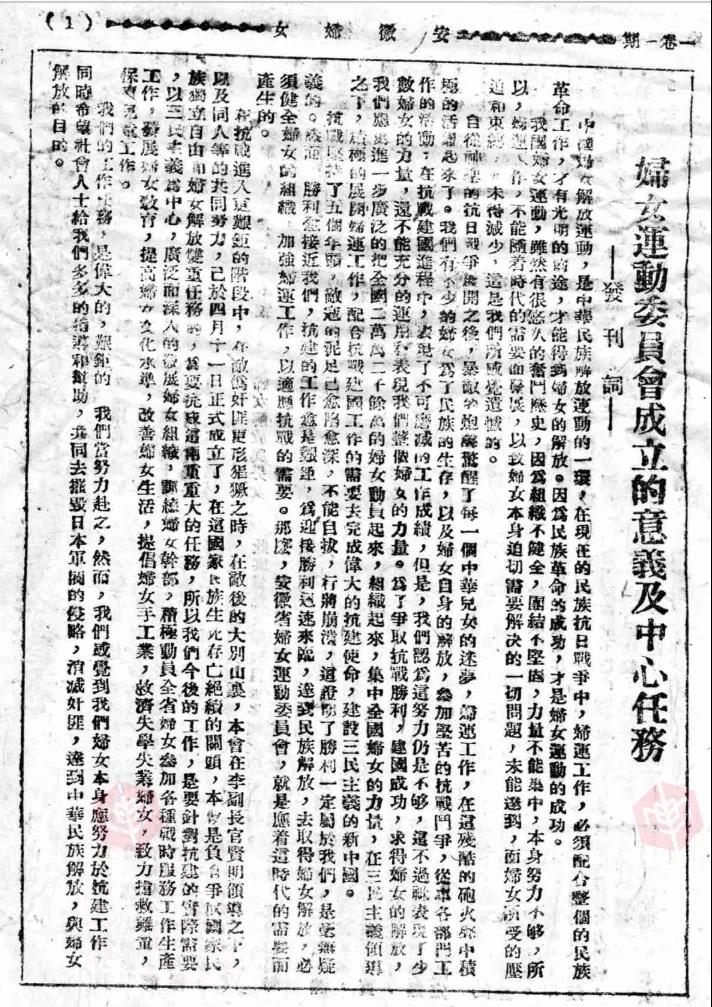 一卷一期
安徽婦女
(1)
婦女運動委員會成立的意義及中心任務
——發刊詞——
中國婦女解放運動，是中華民族解放運動的一環，在現在的民族抗日戰爭中，婦運工作，必須配合整個的民族
革命工作，才有光明的前途，才能得到婦女的解放。因爲民族革命的成功，才是婦女運動的成功。
我國婦女運動，雖然有很悠久的奮鬥歷史，因爲組織不健全，團結不堅固，力量不能集中，本身努力不够，所
以，婦運工作，不能隨着時代的需要而發展，以致婦女本身迫切需要解決的一切問題，未能達到，而婦女所受的壓
迫和束縛，未得減少，這是我們所感覺遺憾的。
自從神聖的抗日戰爭展開之後，暴敵的炮火驚醒了每一個中華兒女的迷夢，婦運工作，在這殘酷的砲火聲中積
極的活躍起來了。我們有不少的婦女爲了民族的生存，以及婦女自身的解放，參加堅苦的抗戰鬥爭，從事各部門工
作的活動，在抗戰建國進程中，表現了不可磨滅的工作成績，但是，我們認爲這努力仍是不够，這不過祇表現了少
數婦女的力量，還不能充分的運用和表現我們整個婦女的力量。爲了爭取抗戰勝利，建國成功，求得婦女的解放，
我們應更進一步廣泛的把全國二萬萬二千餘萬的婦女動員起來，組織起來，集中全國婦女的力量，在三民主義領導
之下，積極的展開婦運工作，配合抗戰建國工作的需要去完成偉大的抗建使命，建設三民主義的新中國。
抗戰堅持了五個年頭，敵寇的泥足已愈陷愈深，不能自拔，行將崩潰，這證明了勝利一定屬於我們，是毫無疑
義的。然而，勝利愈接近我們，抗建的工作愈是艱鉅，爲迎接勝利迅速來臨，達到民族解放，去取得婦女解放，必
須健全婦女的組織，加強婦運工作，以適應抗戰的需要。那麼，安徽省婦女運動委員會，就是應着這時代的需要而
產生的。
在抗戰進入更艱鉅的階段中，在敵僞奸匪更形猖獗之時，在敵後的大別山裏，本會在李副長官賢明領導之下，
以及同人等的共同努力，已於四月十一日正式成立了，在這國家民族生死存亡絕續的關頭，本會是負有爭取國家民
族獨立自由和婦女解放雙重任務的，爲要完成這兩重重大的任務，所以我們今後的工作，是要針對抗建的實際需要
，以三民主義爲中心，廣泛而深入的發展婦女組織，訓練婦女幹部，積極動員全省婦女參加各種戰時服務工作生產
工作，發展婦女教育，提高婦女文化水準，改善婦女生活，提倡婦女手工業，救濟失學失業婦女，致力搶救難童，
保育兒童工作。
我們的工作任務，是偉大的，艱鉅的，我們當努力赴之，然而，我們感覺到我們婦女本身應努力於抗建工作，
同時希望社會人士給我們多多的指導和幫助，共同去摧毀日本軍閥的侵略，消滅奸匪，達到中華民族解放，與婦女
解放的目的。